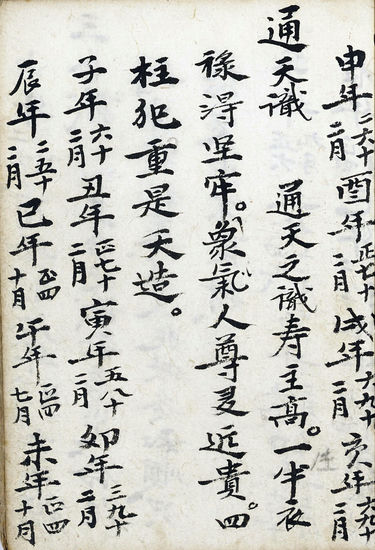 申年二六十二月酉年正七十二月戌年 亥年六九十二月
通天識 通天之識寿主高。一牛衣
生
祿得坚牢。象氣人尊更近貴。四
柱犯重是天造。
子年六十二月丑年正七十二月寅年五八十二月卯年三九十二月
辰年二五十二月巳年正四十月午年正四七月未年正四十月